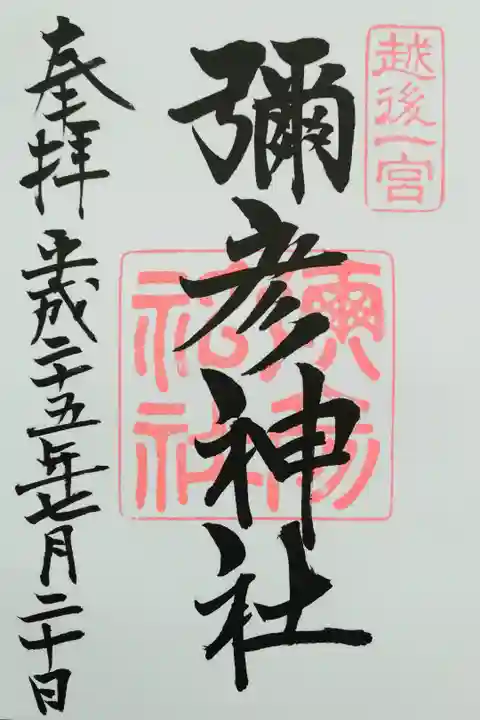 越後一宮
彌彦神社
彌彦神社
奉拝 平成二十五年七月二十日